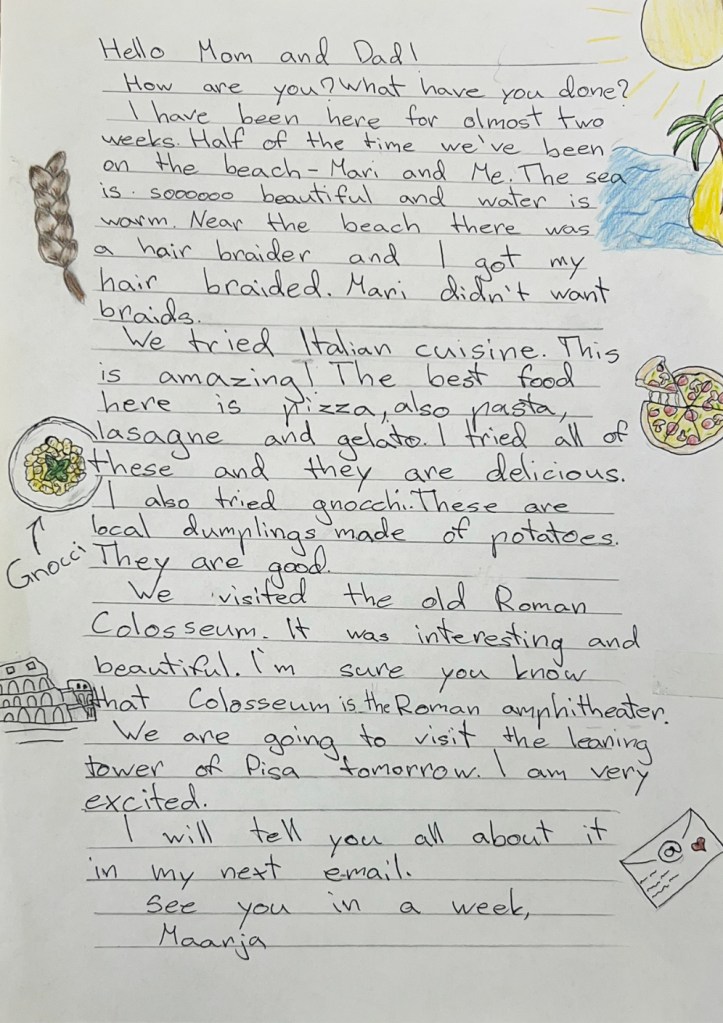 Hello Mom and Dad!
How are you? What have you done?
I have been here for almost two
weeks. Half of the time we've been
on the beach - Mari and Me. The sea
is soooooo beautiful and water is
warm. Near the beach there was
a hair braider and I got my
hair braided. Mari didn't want
braids.
We tried Italian cuisine. This
is amazing! The best food
here is pizza, also pasta,
lasagne and gelato. I tried all of
these and they are delicious.
I also tried gnocchi. These are
local dumplings made of potatoes.
They are good.
Gnocci
We visited the old Roman
Colosseum. It was interesting and
beautiful. I'm sure you know
that Colosseum is the Roman amphitheater.
We are going to visit the leaning
tower of Pisa tomorrow. I am very
excited.
I will tell you all about it
in my next email.
@
See you in a week,
Maarja